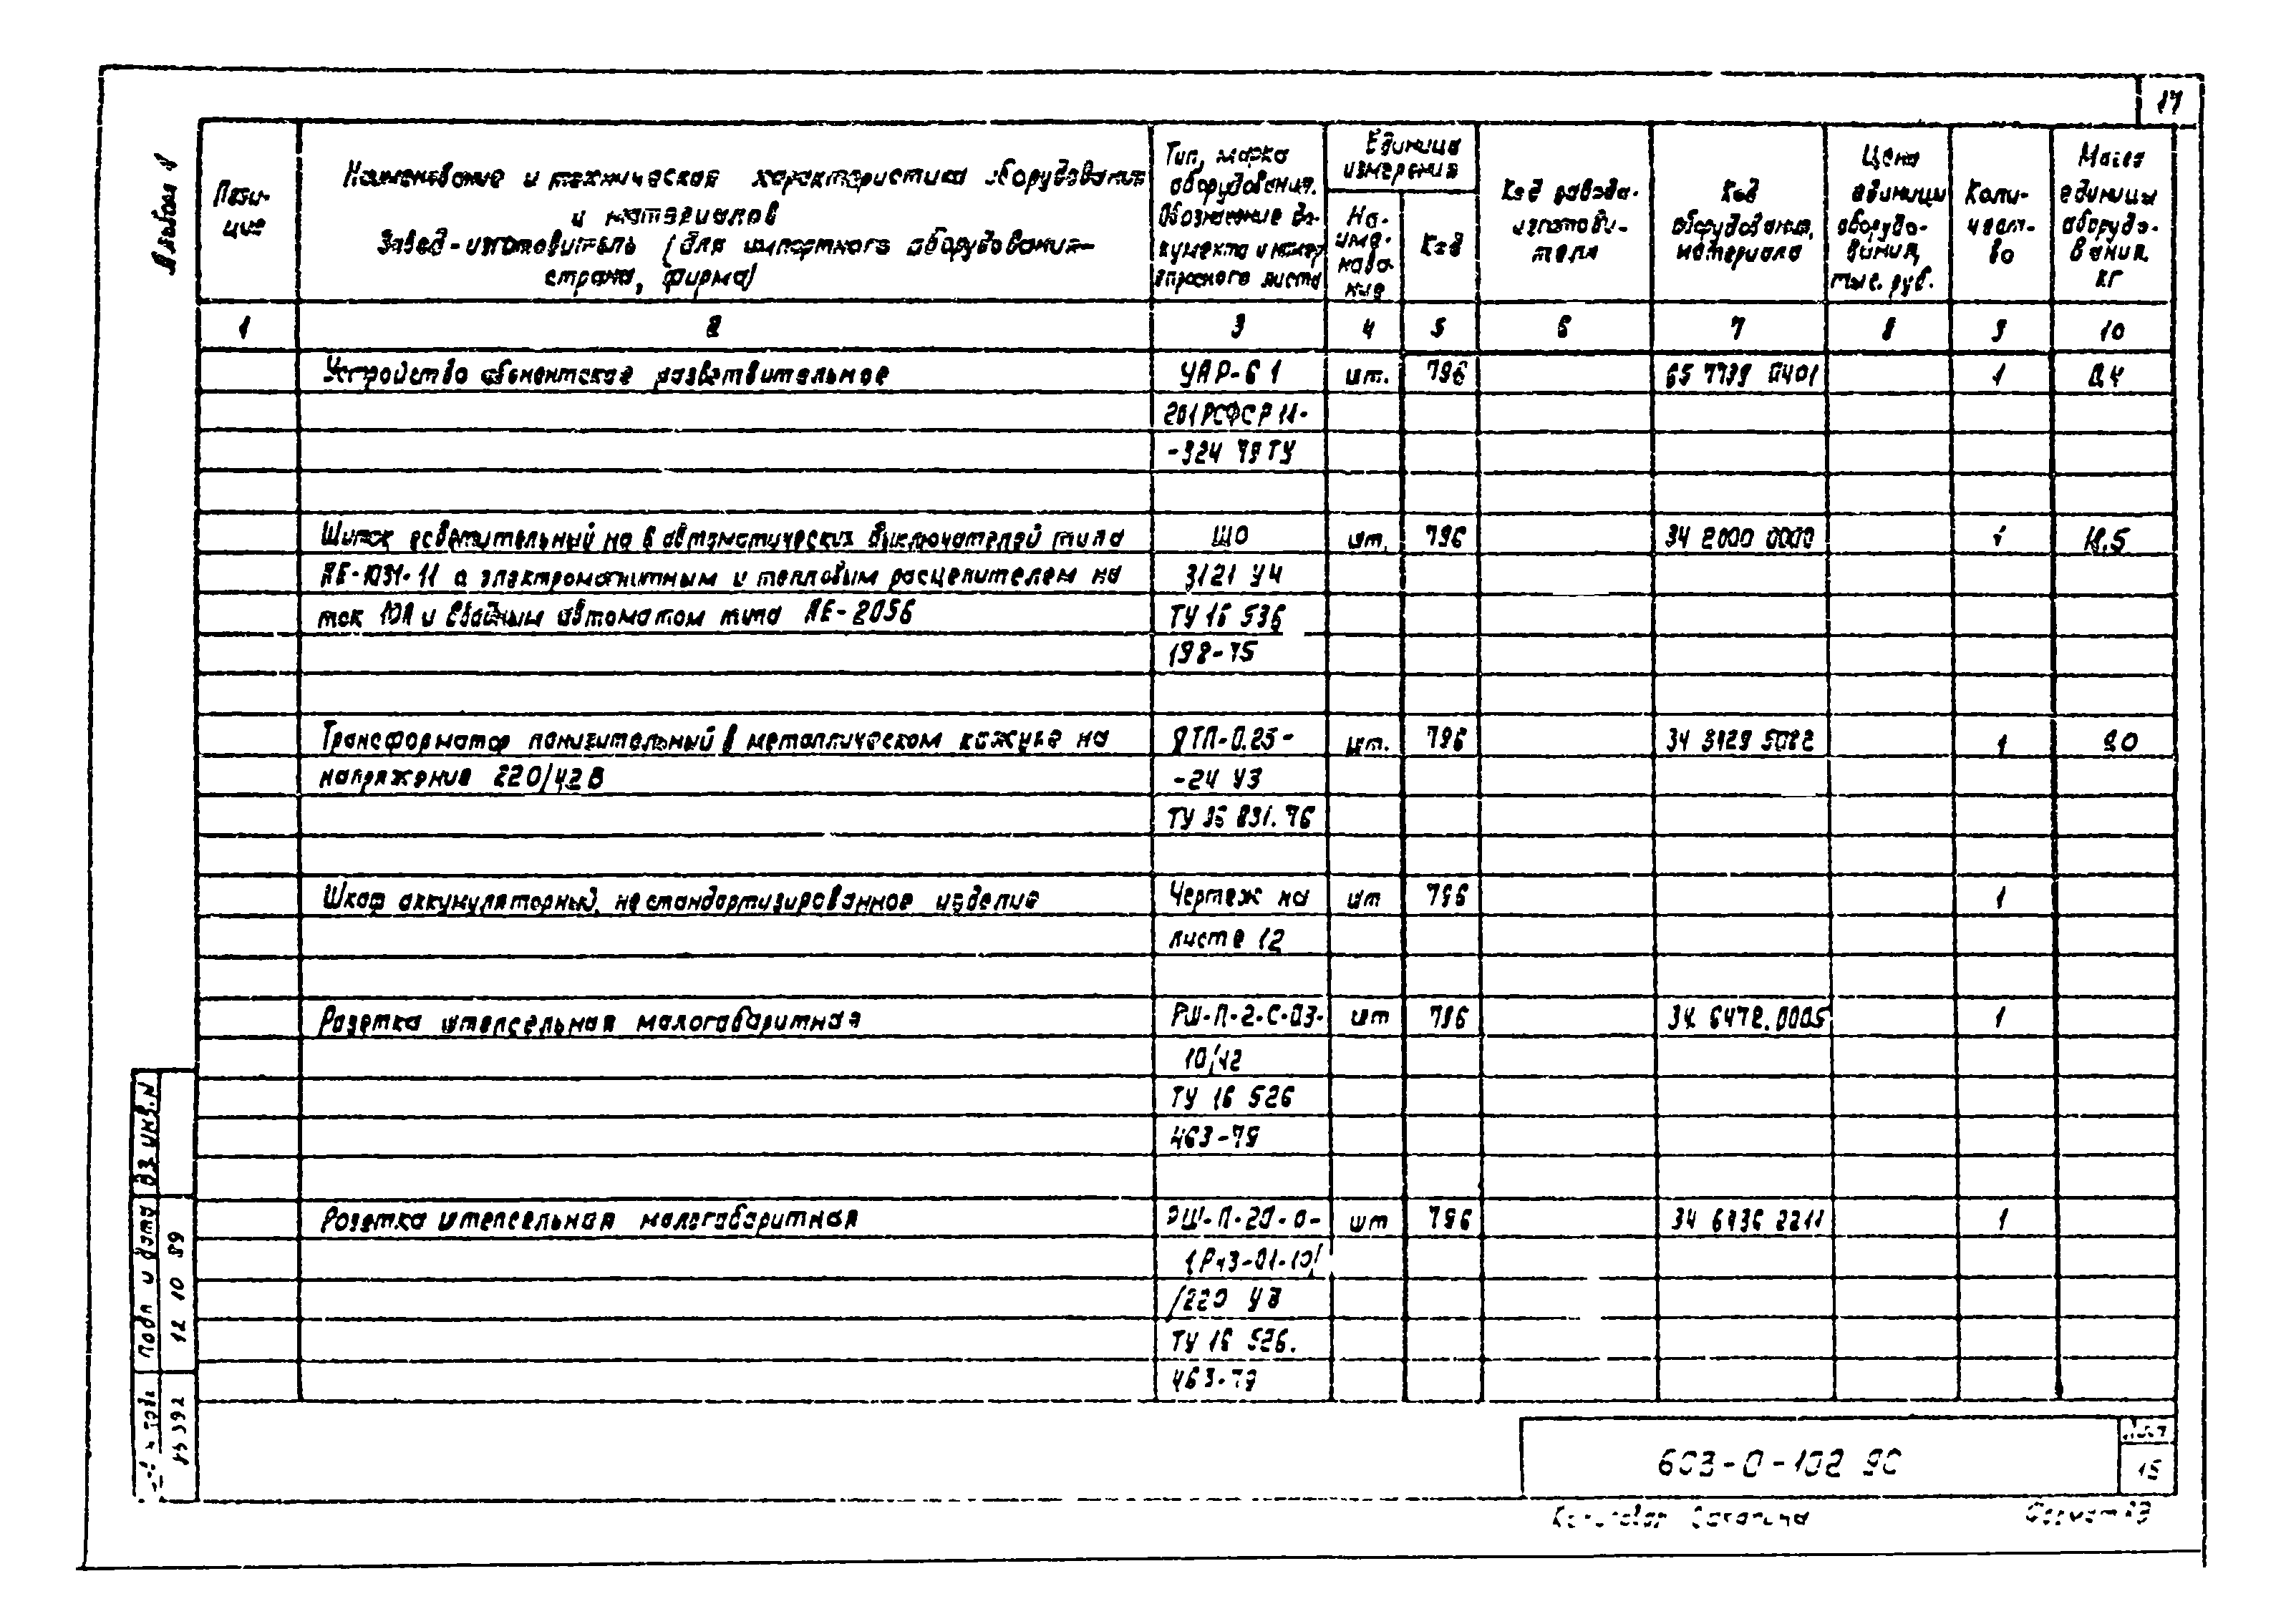 17
Альбом V
Пози-
ция
Наименование и техническая характеристика оборудования
и материалов
Завод-изготовитель (для импортного оборудования-
страна, фирма)
Тип, марка
оборудования.
Обозначение до-
кумента и номер
опросного листа
Единица
измерения
На-
име-
нова-
ние
Код
Код завода-
изготови-
теля
Код
оборудования,
материала
Цена
единицы
оборудо-
вания,
тыс. руб.
Коли-
чест-
во
Масса
единицы
оборудо-
вания,
кг
1 2 3 4 5 6 7 8 9 10
Устройство абонентское разветвительное УАР-6 1 шт. 796 65 7739 0401 1 0,4
201РСФСР 11-
-324 79 ТУ
Щиток осветительный на 6 автоматических выключателей типа ЩО шт. 796 34 2000 0000 1
АЕ-1031-11 с электромагнитным и тепловым расцепителем на 3121 У4
ток 10А и вводным автоматом типа АЕ-2056 ТУ 16 536
198-75
Трансформатор понизительный в металлическом кожухе на ЯТП-0.25- шт. 796 34 3129 5082 1
напряжение 220/42 В -24 У3
ТУ 36 831. 76
Шкаф аккумуляторный, нестандартизированное изделие Чертеж на шт 796 1
листе 12
Розетка штепсельная малогабаритная РШ-П-2-С-03- шт 796 34. 6472.0005 1
10/42
ТУ 16 526
463-79
Розетка штепсельная малогабаритная РШ-П-20-0- шт 796 1
-01-10/
/220 У3
ТУ 16 526.
463-79
Вз инв. N
Подп и дата
12 10 89
603-0-102 90
Лист
15
Копировал
Формат А3